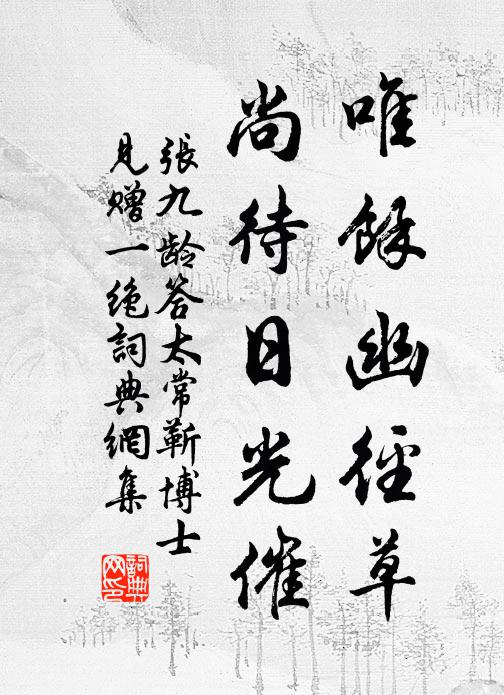 唯餘幽徑草
尚待日光催
張九龄答太常靳博士
見贈一绝詞典網集
詞典網印